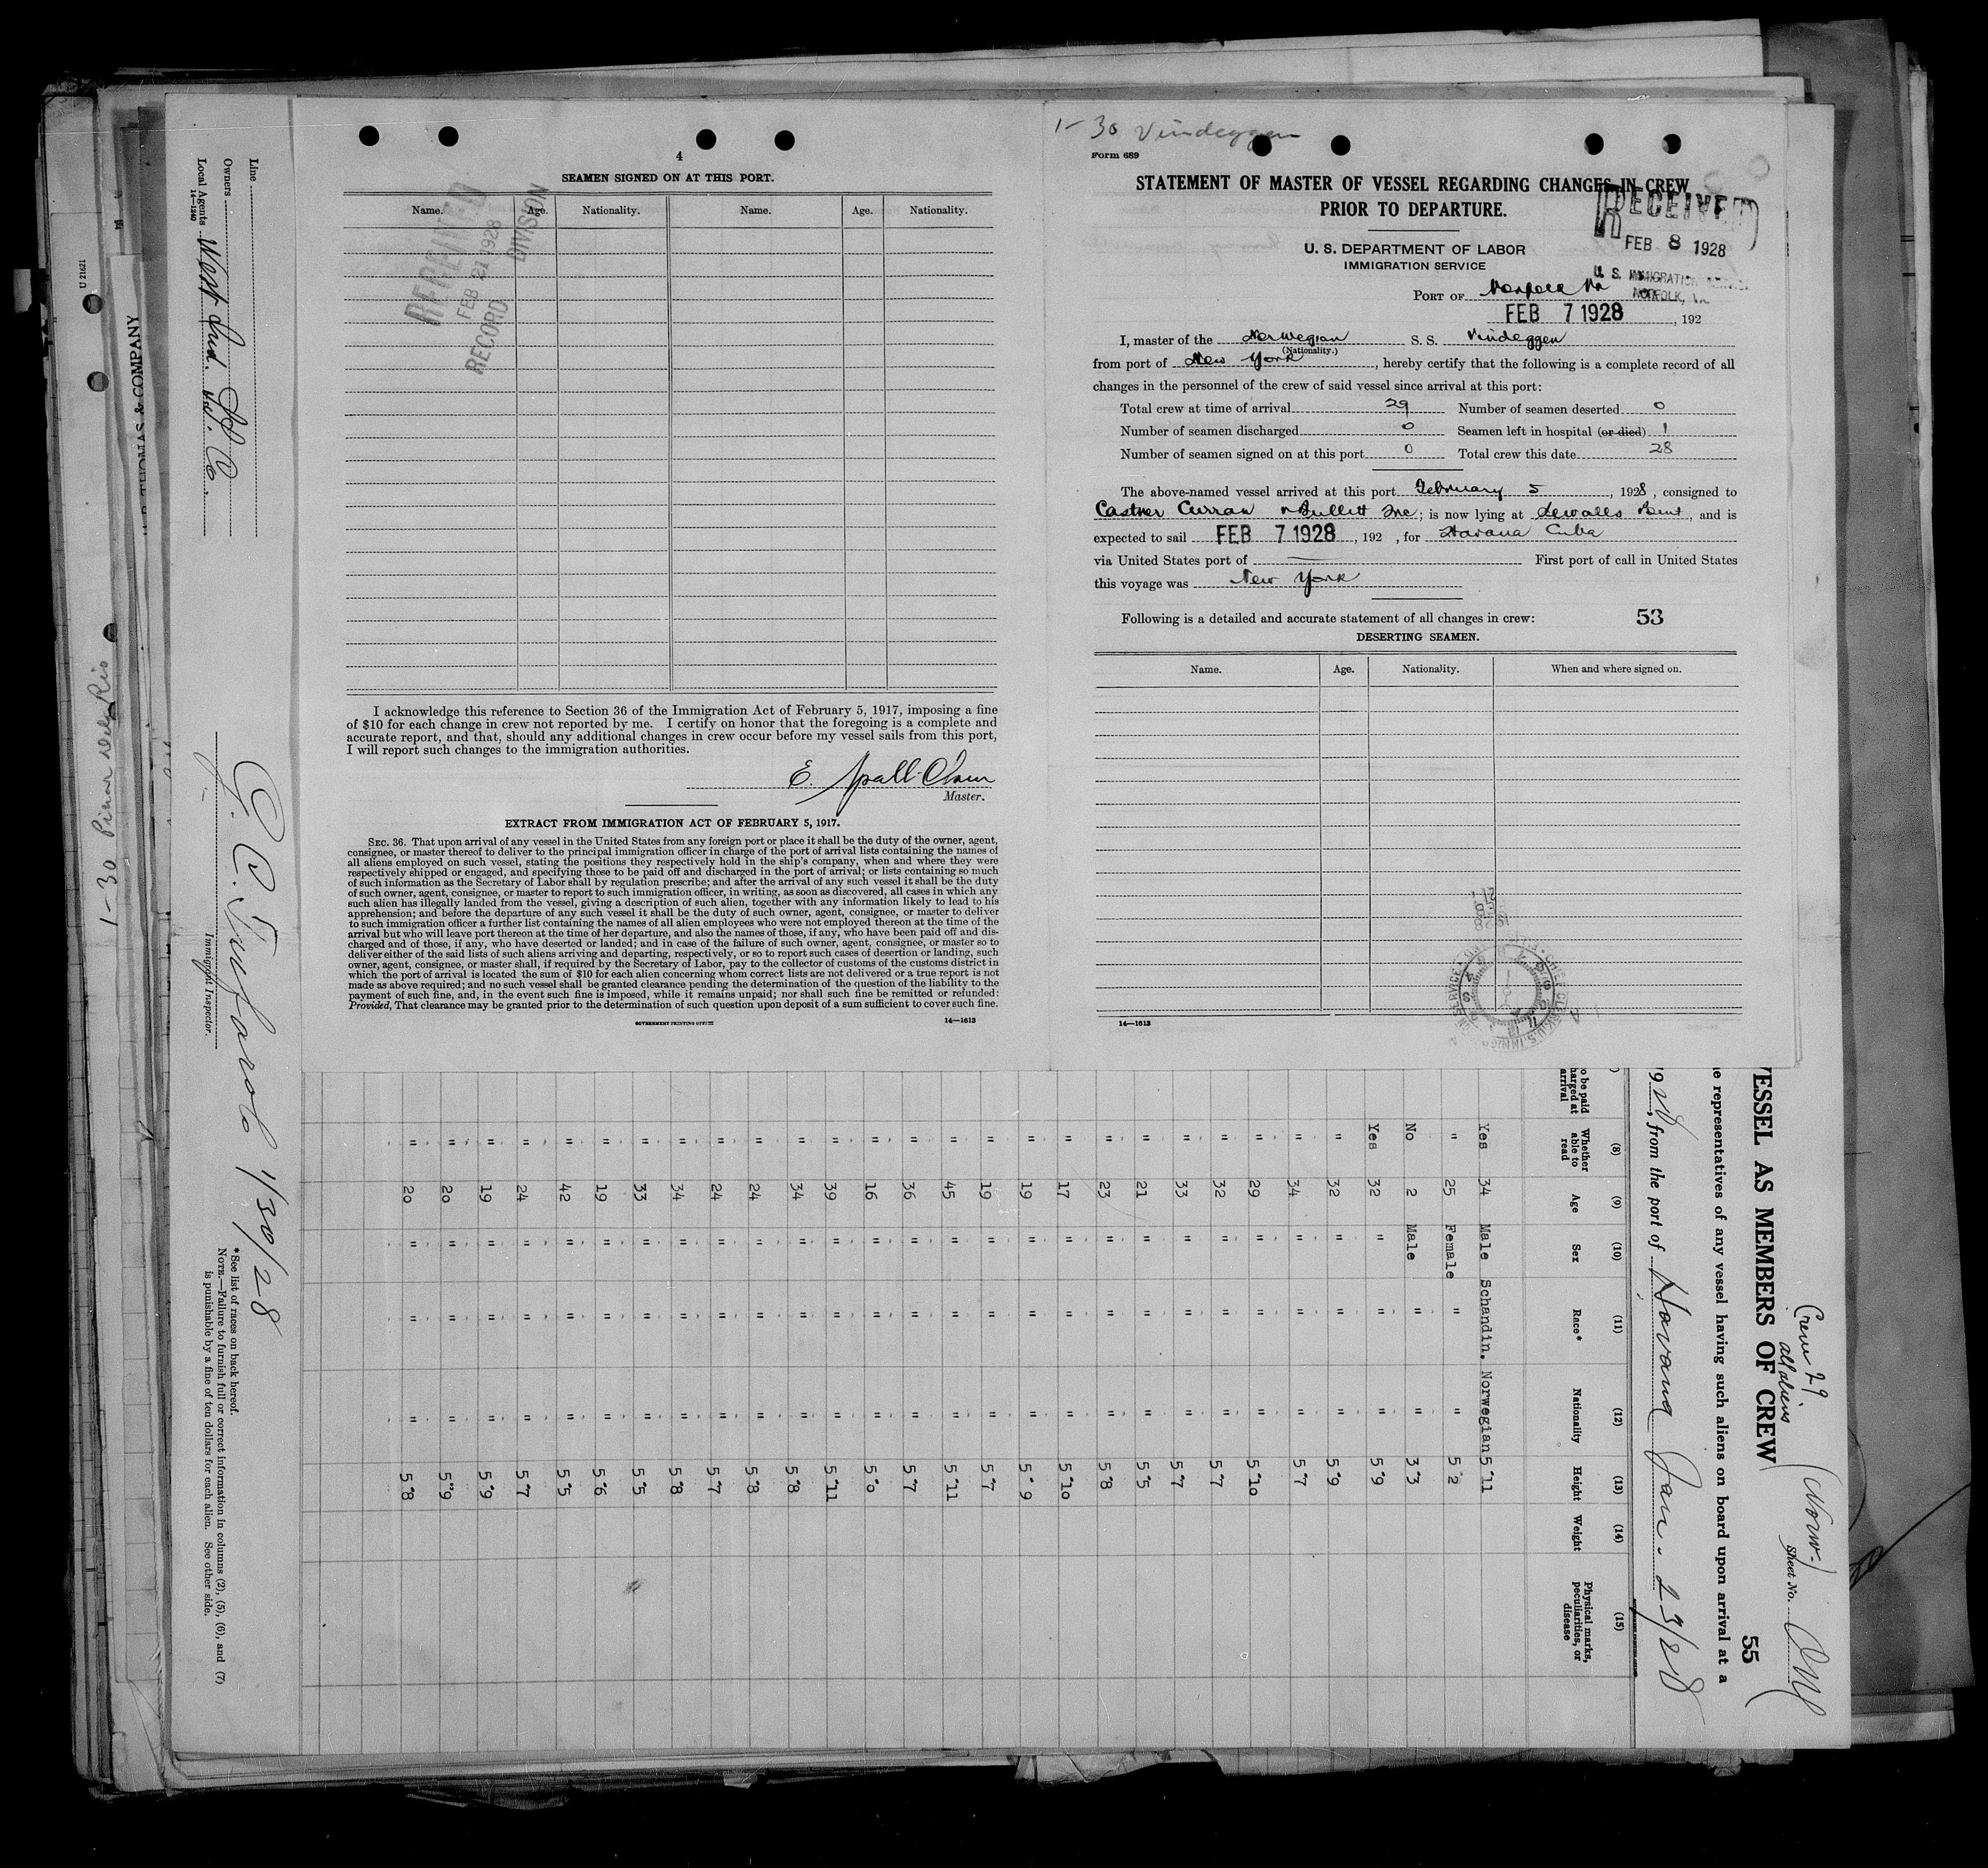 4
SEAMEN SIGNED ON AT THIS PORT.
Name. Age. Nationality. Name. Age. Nationality.
RECEIVED
FEB 21 1928
RECORD DIVISION
I acknowledge this reference to Section 36 of the Immigration Act of February 5, 1917, imposing a fine
of $10 for each change in crew not reported by me. I certify on honor that the foregoing is a complete and
accurate report, and that, should any additional changes in crew occur before my vessel sails from this port,
I will report such changes to the immigration authorities.
E.
Master.
EXTRACT FROM IMMIGRATION ACT OF FEBRUARY 5, 1917.
SEC. 36. That upon arrival of any vessel in the United States from any foreign port or place it shall be the duty of the owner, agent,
consignee, or master thereof to deliver to the principal immigration officer in charge of the port of arrival lists containing the names of
all aliens employed on such vessel, stating the positions they respectively hold in the ship's company, when and where they were
respectively shipped or engaged, and specifying those to be paid off and discharged in the port of arrival; or lists containing so much
of such information as the Secretary of Labor shall by regulation prescribe; and after the arrival of any such vessel it shall be the duty
of such owner, agent, consignee, or master to report to such immigration officer, in writing, as soon as discovered, all cases in which any
such alien has illegally landed from the vessel, giving a description of such alien, together with any information likely to lead to his
apprehension; and before the departure of any such vessel it shall be the duty of such owner, agent, consignee, or master to deliver
to such immigration officer a further list containing the names of all alien employees who were not employed thereon at the time of the
arrival but who will leave port thereon at the time of her departure, and also the names of those, if any, who have been paid off and dis-
charged and of those, if any, who have deserted or landed; and in case of the failure of such owner, agent, consignee, or master so to
deliver either of the said lists of such aliens arriving and departing, respectively, or so to report such cases of desertion or landing, such
owner, agent, consignee, or master shall, if required by the Secretary of Labor, pay to the collector of customs of the customs district in
which the port of arrival is located the sum of $10 for each alien concerning whom correct lists are not delivered or a true report is not
made as above required; and no such vessel shall be granted clearance pending the determination of the question of the liability to the
payment of such fine, and, in the event such fine is imposed, while it remains unpaid; nor shall such fine be remitted or refunded:
Provided, That clearance may be granted prior to the determination of such question upon deposit of a sum sufficient to cover such fine.
GOVERNMENT PRINTING OFFICE
14—1613
1-30 Vindeggen
Form 689
STATEMENT OF MASTER OF VESSEL REGARDING CHANGES IN CREW
PRIOR TO DEPARTURE.
RECEIVED
FEB 8 1928
U. S. IMMIGRATION
NORFOLK, VA.
U. S. DEPARTMENT OF LABOR
IMMIGRATION SERVICE
PORT OF Norfolk Va
FEB 7 1928, 192
I, master of the Norwegian S. S. Vindeggen
(Nationality.)
from port of New York, hereby certify that the following is a complete record of all
changes in the personnel of the crew of said vessel since arrival at this port:
Total crew at time of arrival 29 Number of seamen deserted 0
Number of seamen discharged 0 Seamen left in hospital (or died) 1
Number of seamen signed on at this port 0 Total crew this date 28
The above-named vessel arrived at this port February 5, 1928, consigned to
Castner Curran & Bullitt Inc; is now lying at Sewalls Point, and is
expected to sail FEB 7 1928, 192 , for Havana Cuba
via United States port of — First port of call in United States
this voyage was New York
Following is a detailed and accurate statement of all changes in crew: 53
DESERTING SEAMEN.
Name. Age. Nationality. When and where signed on.
14—1613
Crew 29 (Norw.)
all aliens
Sheet No.
55
VESSEL AS MEMBERS OF CREW
e representatives of any vessel having such aliens on board upon arrival at a
1928, from the port of Havana Jan. 23/28
o be paid
harged at
arrival
(8) Whether able to read
(9) Age
(10) Sex
(11) Race*
(12) Nationality
(13) Height
(14) Weight
(15) Physical marks, peculiarities, or disease
Yes 34 Male Schandin. Norwegian 5"11
" 25 Female " " 5 2
No 2 Male " " 3 3
Yes 32 " " " 5"9
" 32 " " " 5"9
" 34 " " " 5"7
" 29 " " " 5"10
" 32 " " " 5"7
" 33 " " " 5"7
" 21 " " " 5"5
" 23 " " " 5"8
" 17 " " " 5"10
" 19 " " " 5"9
" 19 " " " 5"7
" 45 " " " 5"11
" 36 " " " 5"7
" 16 " " " 5"0
" 39 " " " 5"11
" 34 " " " 5"8
" 24 " " " 5"8
" 24 " " " 5"7
" 34 " " " 5"8
" 33 " " " 5"5
" 19 " " " 5"6
" 42 " " " 5"5
" 24 " " " 5"7
" 19 " " " 5"9
" 20 " " " 5"9
" 20 " " " 5"8
*See list of races on back hereof.
NOTE.—Failure to furnish full or correct information in columns (2), (5), (6), and (7)
is punishable by a fine of ten dollars for each alien. See other side.
1/30/28
Immigrant Inspector.
Line
Owners
Local Agents West Ind. Co.
14—1240
1-30 Pinar Del Rio
THOMAS & COMPANY
U 21621